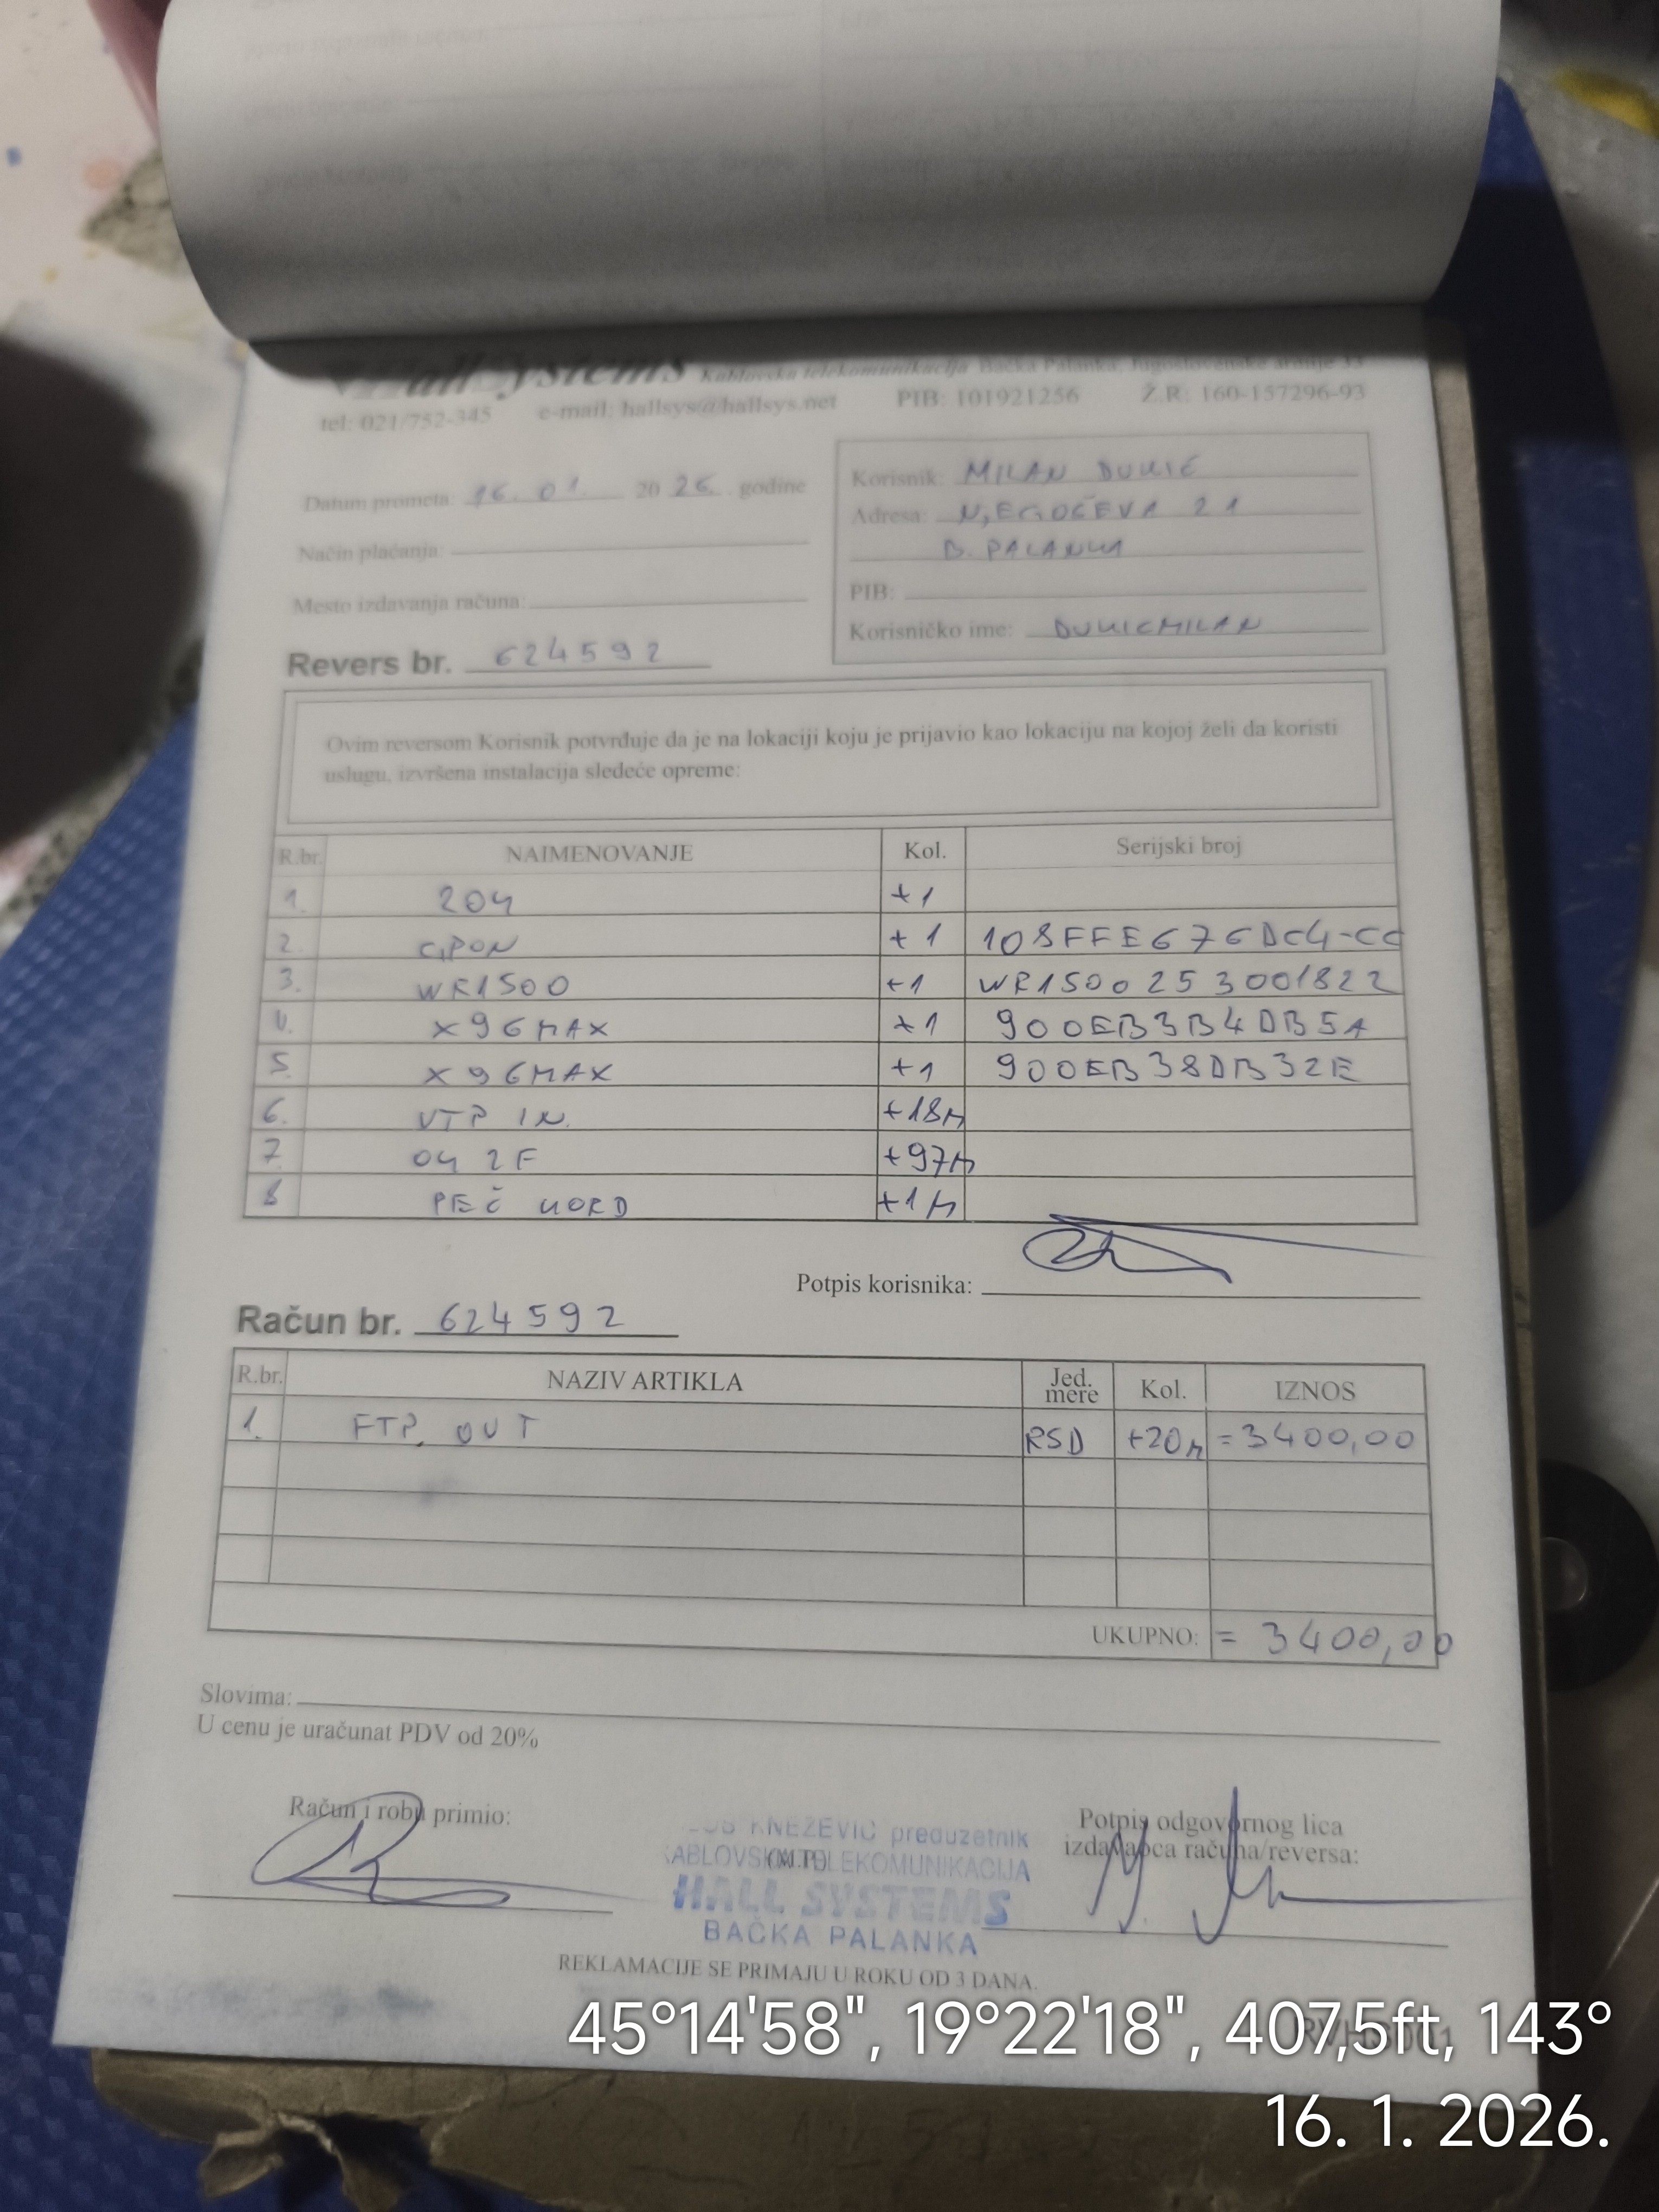 Hall Systems Kablovska telekomunikacija Bačka Palanka, Jugoslovenske armije 33
tel: 021/752-345 e-mail: hallsys@hallsys.net PIB: 101921256 Ž.R: 160-157296-93
Datum prometa: 16.01. 2026. godine
Korisnik: MILAN DUKIĆ
Adresa: NJEGOŠEVA 21
B. PALANKA
Način plaćanja:
Mesto izdavanja računa:
PIB:
Korisničko ime: DUKICMILAN
Revers br. 624592
Ovim reversom Korisnik potvrđuje da je na lokaciji koju je prijavio kao lokaciju na kojoj želi da koristi
uslugu, izvršena instalacija sledeće opreme:
R.br. NAIMENOVANJE Kol. Serijski broj
1. 204 +1
2. GPON +1 108FFE676DC4-CC
3. WR1500 +1 WR1500253001822
4. X96MAX +1 900EB3B4DB5A
5. X96MAX +1 900EB38DB32E
6. UTP IN. +18M
7. 04 2F +97M
8 PEČ KORD +1M
Potpis korisnika:
Račun br. 624592
R.br. NAZIV ARTIKLA Jed. mere Kol. IZNOS
1. FTP OUT RSD +20M =3400,00
UKUPNO: = 3400,00
Slovima:
U cenu je uračunat PDV od 20%
Račun i robu primio:
(M.P.)
Potpis odgovornog lica
izdavaoca računa/reversa:
KNEŽEVIĆ preduzetnik
KABLOVSKA TELEKOMUNIKACIJA
HALL SYSTEMS
BAČKA PALANKA
REKLAMACIJE SE PRIMAJU U ROKU OD 3 DANA.
45°14'58", 19°22'18", 407,5ft, 143°
16. 1. 2026.